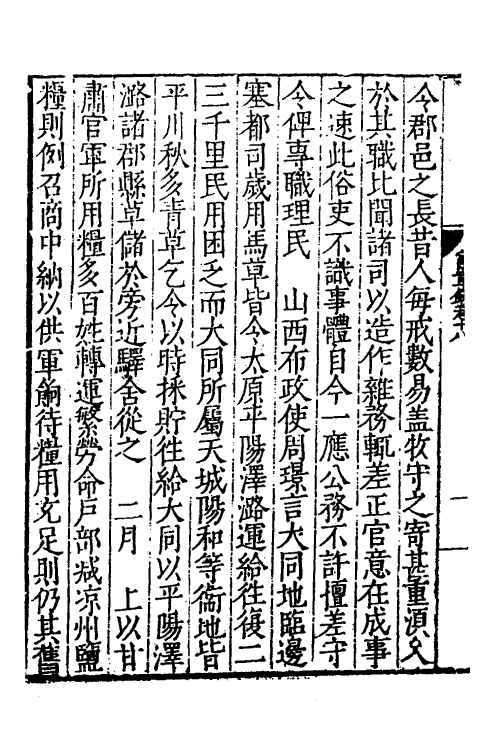 令郡邑之長昔人每戒數易盖牧守之寄甚重湏久
於其職比聞諸司以造作雜務輒差正官意在成事
之速此俗吏不識事體自今一應公務不許擅差守
令俾專職理民　山西布政使周璟言大同地臨邊
塞都司歲用馬草皆令太原平陽澤潞運給往復二
三千里民用困乏而大同所屬天城陽和等衞地皆
平川秋多青草乞令以時採貯徃給大同以平陽澤
潞諸郡縣草儲於旁近驛舍從之　二月　上以甘
肅官軍所用糧多百姓轉運繁勞命戶部减凉州鹽
糧則例召商中納以供軍餉待糧用充足則仍其舊